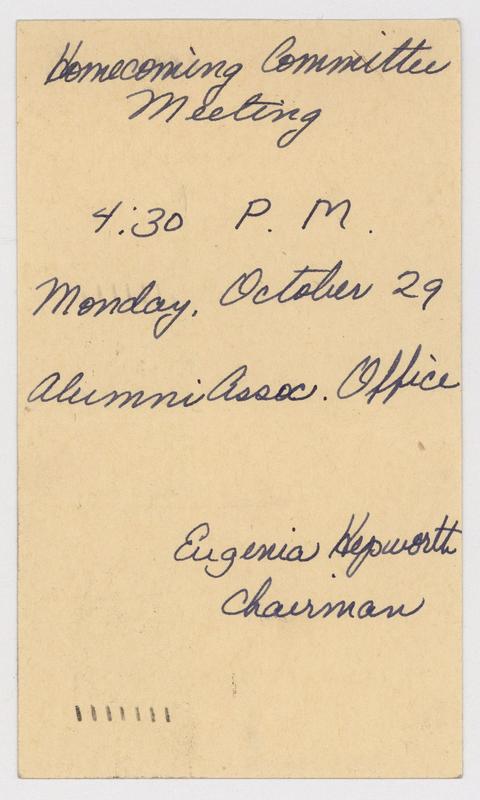 Homecoming Committee
Meeting
4:30 P. M.
Monday, October 29
Alumni Assoc. Office
Eugenia Hepworth
Chairman